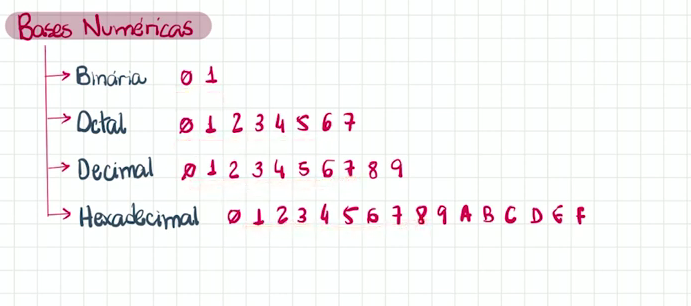 Bases Numéricas
Binária 0 1
Octal 0 1 2 3 4 5 6 7
Decimal 0 1 2 3 4 5 6 7 8 9
Hexadecimal 0 1 2 3 4 5 6 7 8 9 A B C D E F